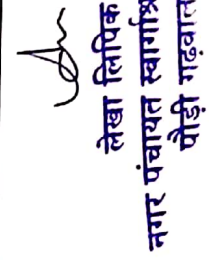 लेखा लिपिक
नगर पंचायत स्वर्गाश्र
पौड़ी गढ़वाल